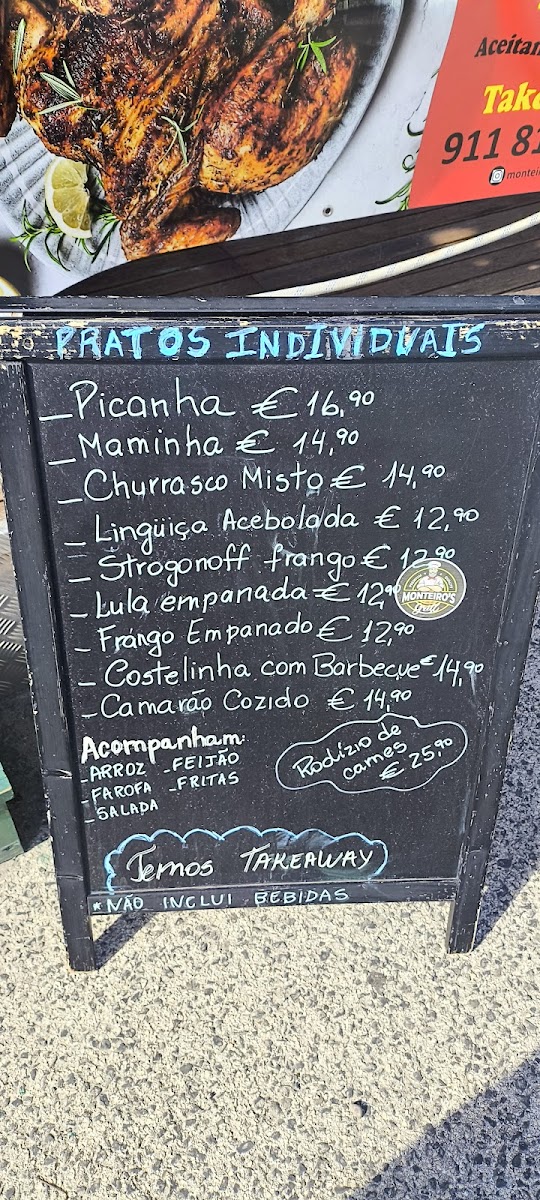 Aceitam
Take
911 81
monteir
PRATOS INDIVIDUAIS
_Picanha € 16,90
_Maminha € 14,90
_Churrasco Misto € 14,90
_Lingüiça Acebolada € 12,90
_Strogonoff frango € 12,90
_Lula empanada € 12,90
_Frango Empanado € 12,90
_Costelinha com Barbecue € 14,90
_Camarão Cozido € 14,90
MONTEIRO'S
Grill
Acompanham:
_ARROZ _FEIJÃO
_FAROFA _FRITAS
_SALADA
Rodízio de
carnes
€ 25,90
Temos TAKEAWAY
*NÃO INCLUI BEBIDAS